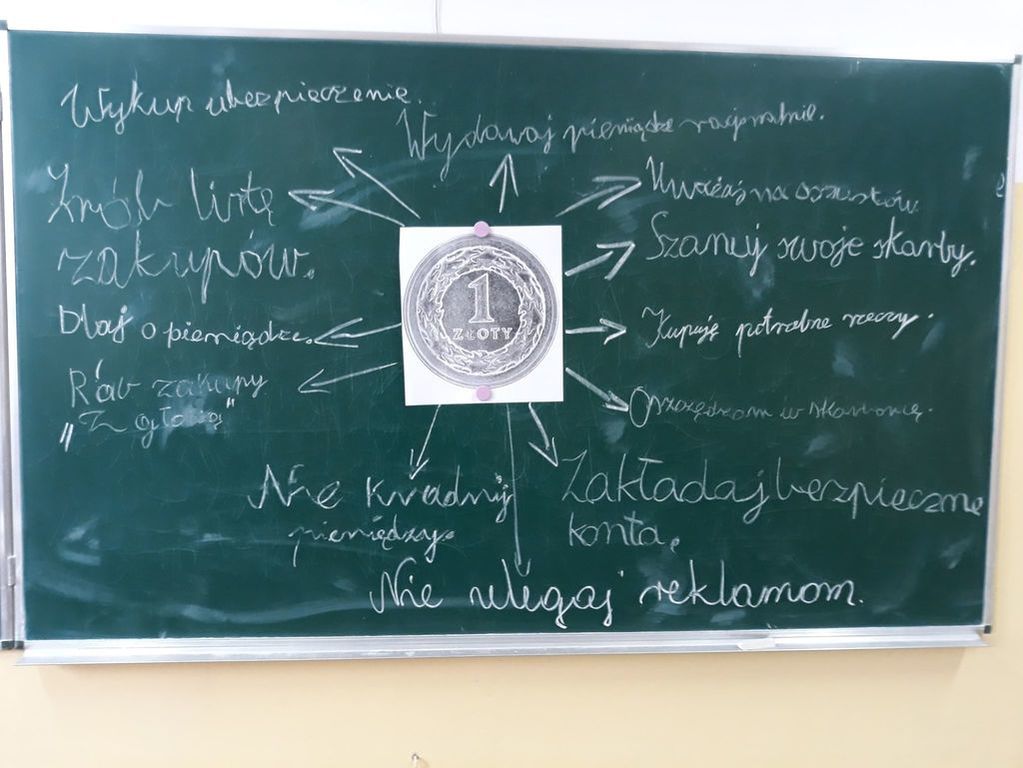 Wykup ubezpieczenie.
Wydawaj pieniądze racjonalnie.
Zrób listę
zakupów.
Uważaj na oszustów
Szanuj swoje skarby.
1
ZŁOTY
Dbaj o pieniądze.
Kupuję potrzebne rzeczy.
Rób zakupy
"Z głową"
Oszczędzam w skarbonce.
Nie kradnij
pieniędzy.
Zakładaj bezpieczne
konta.
Nie ulegaj reklamom.